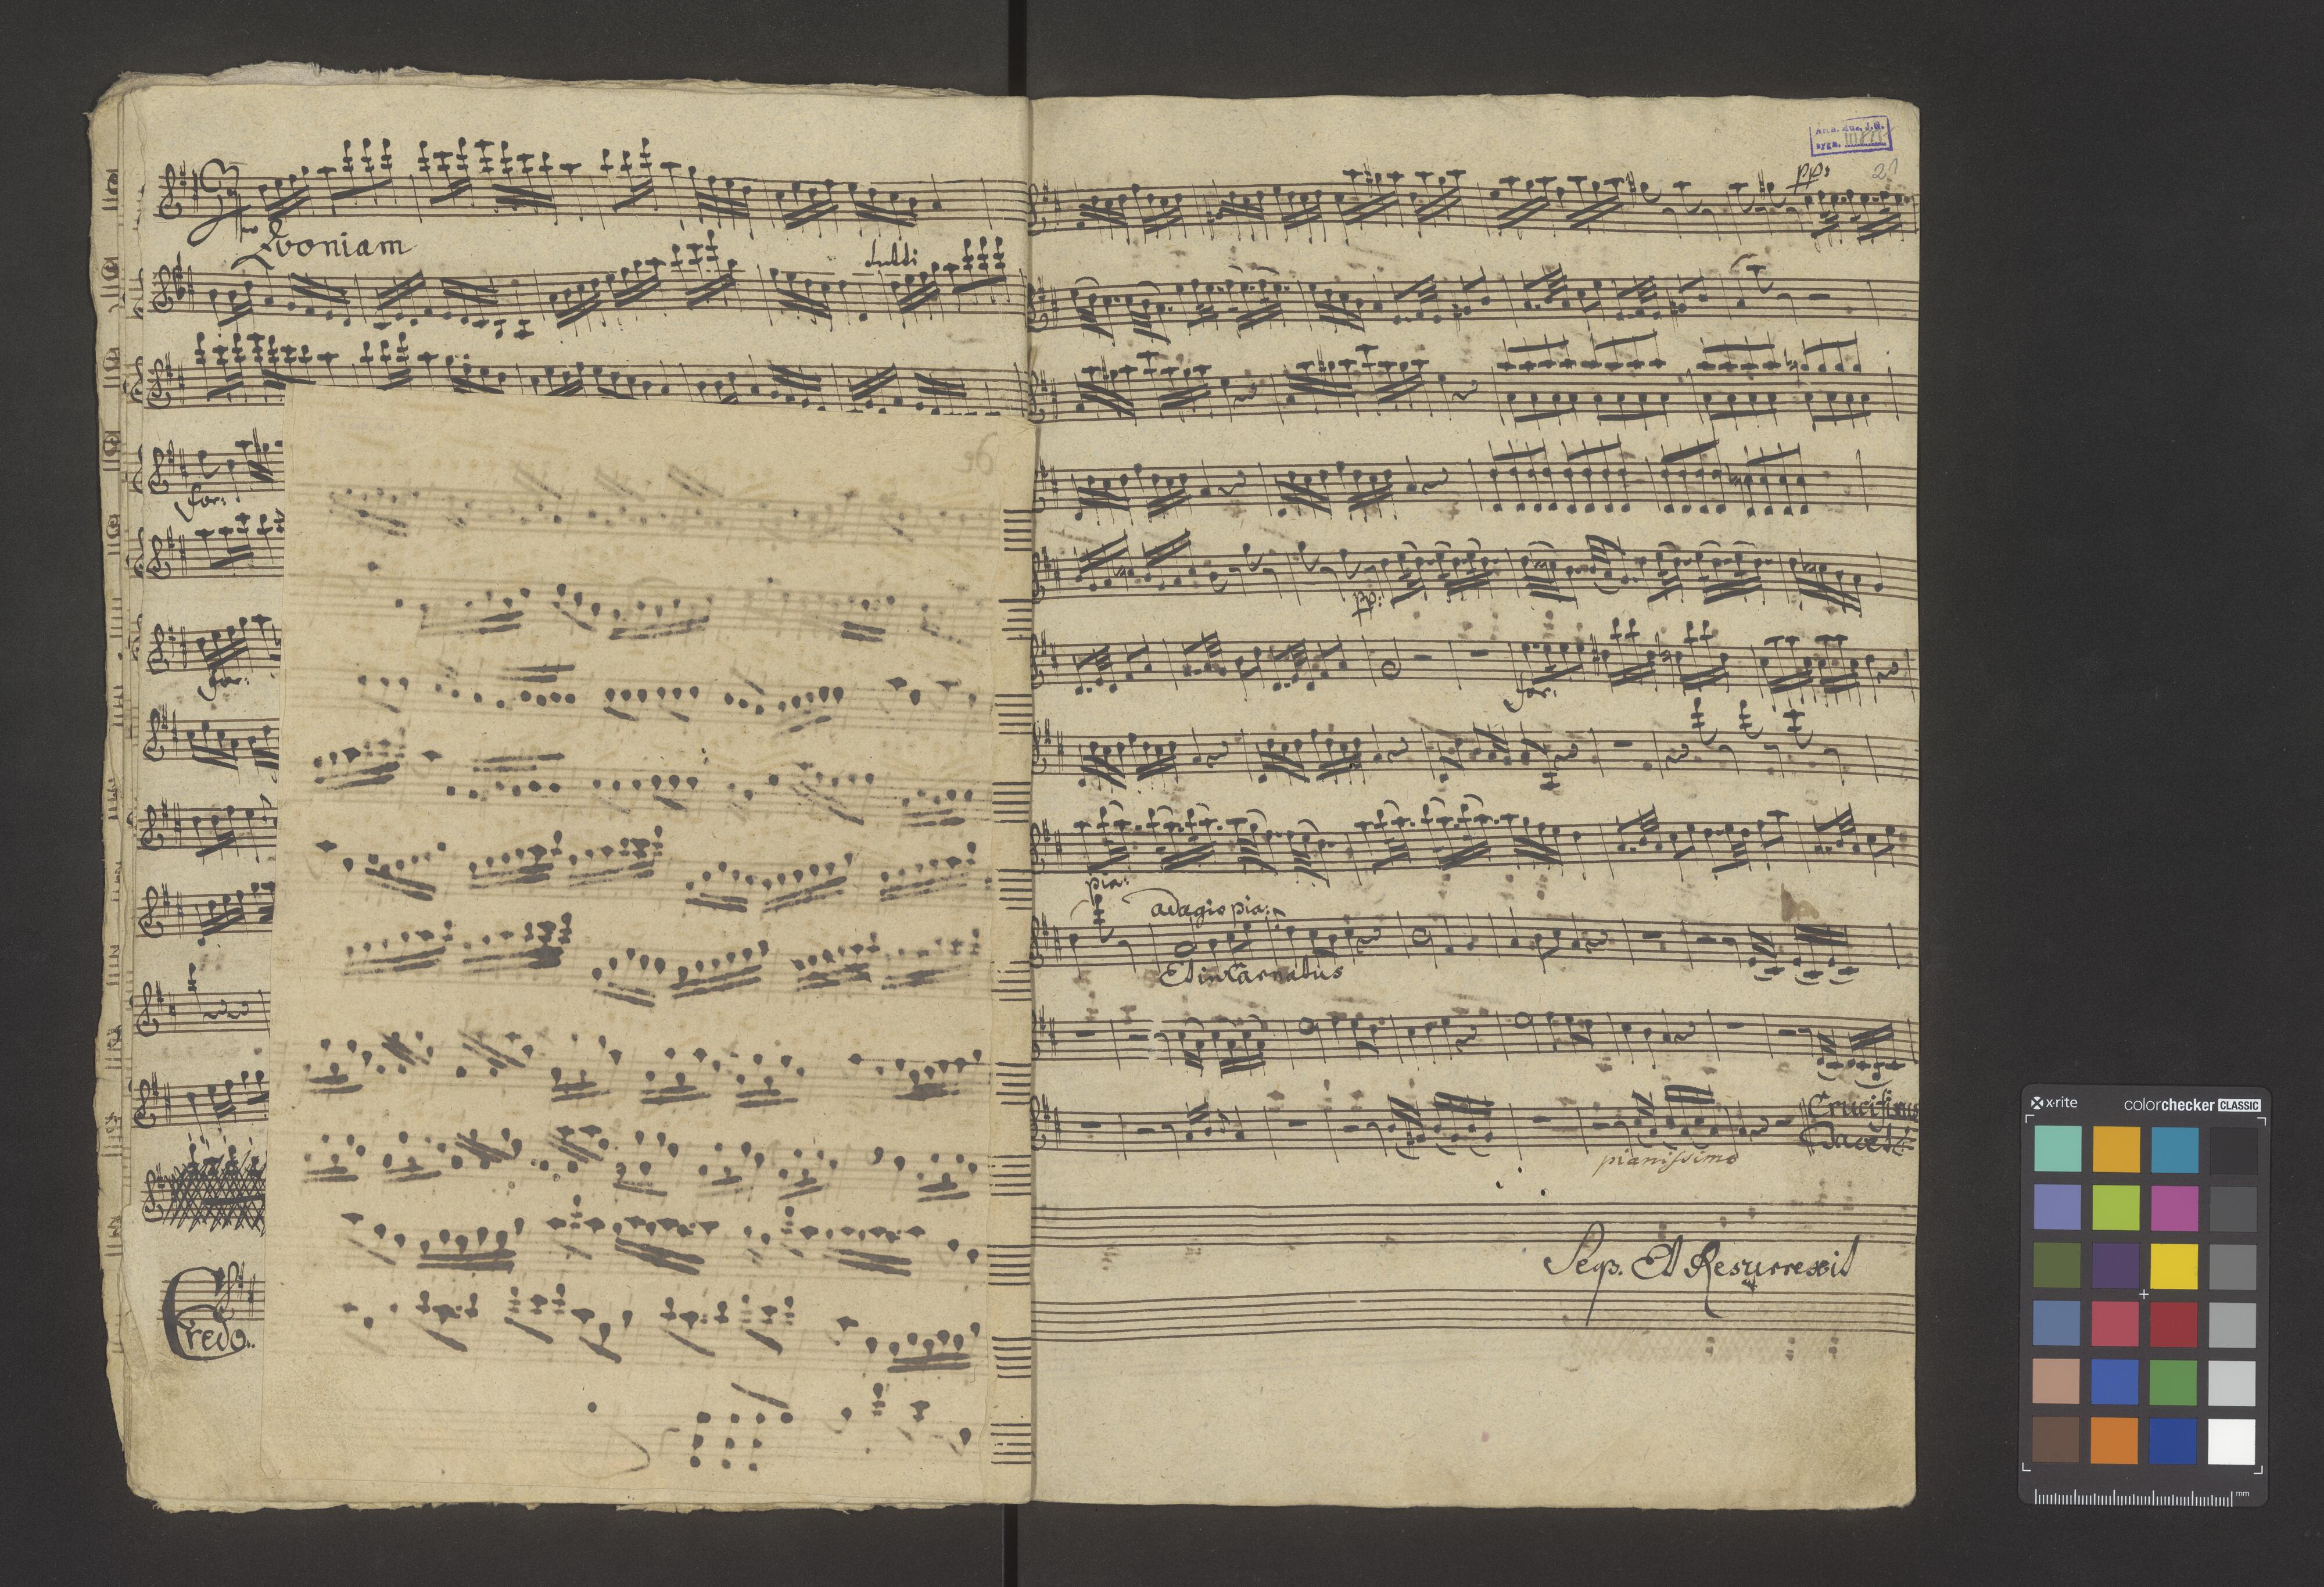 Qvoniam
tutti
for:
for:
Credo.
36
pp:
pp:
for:
pia:
adagio pia:
Et inCarnatus
Crucifixus
Tacet
pianissimo
Seqs. Et Resurrexit
x-rite
colorchecker CLASSIC
mm